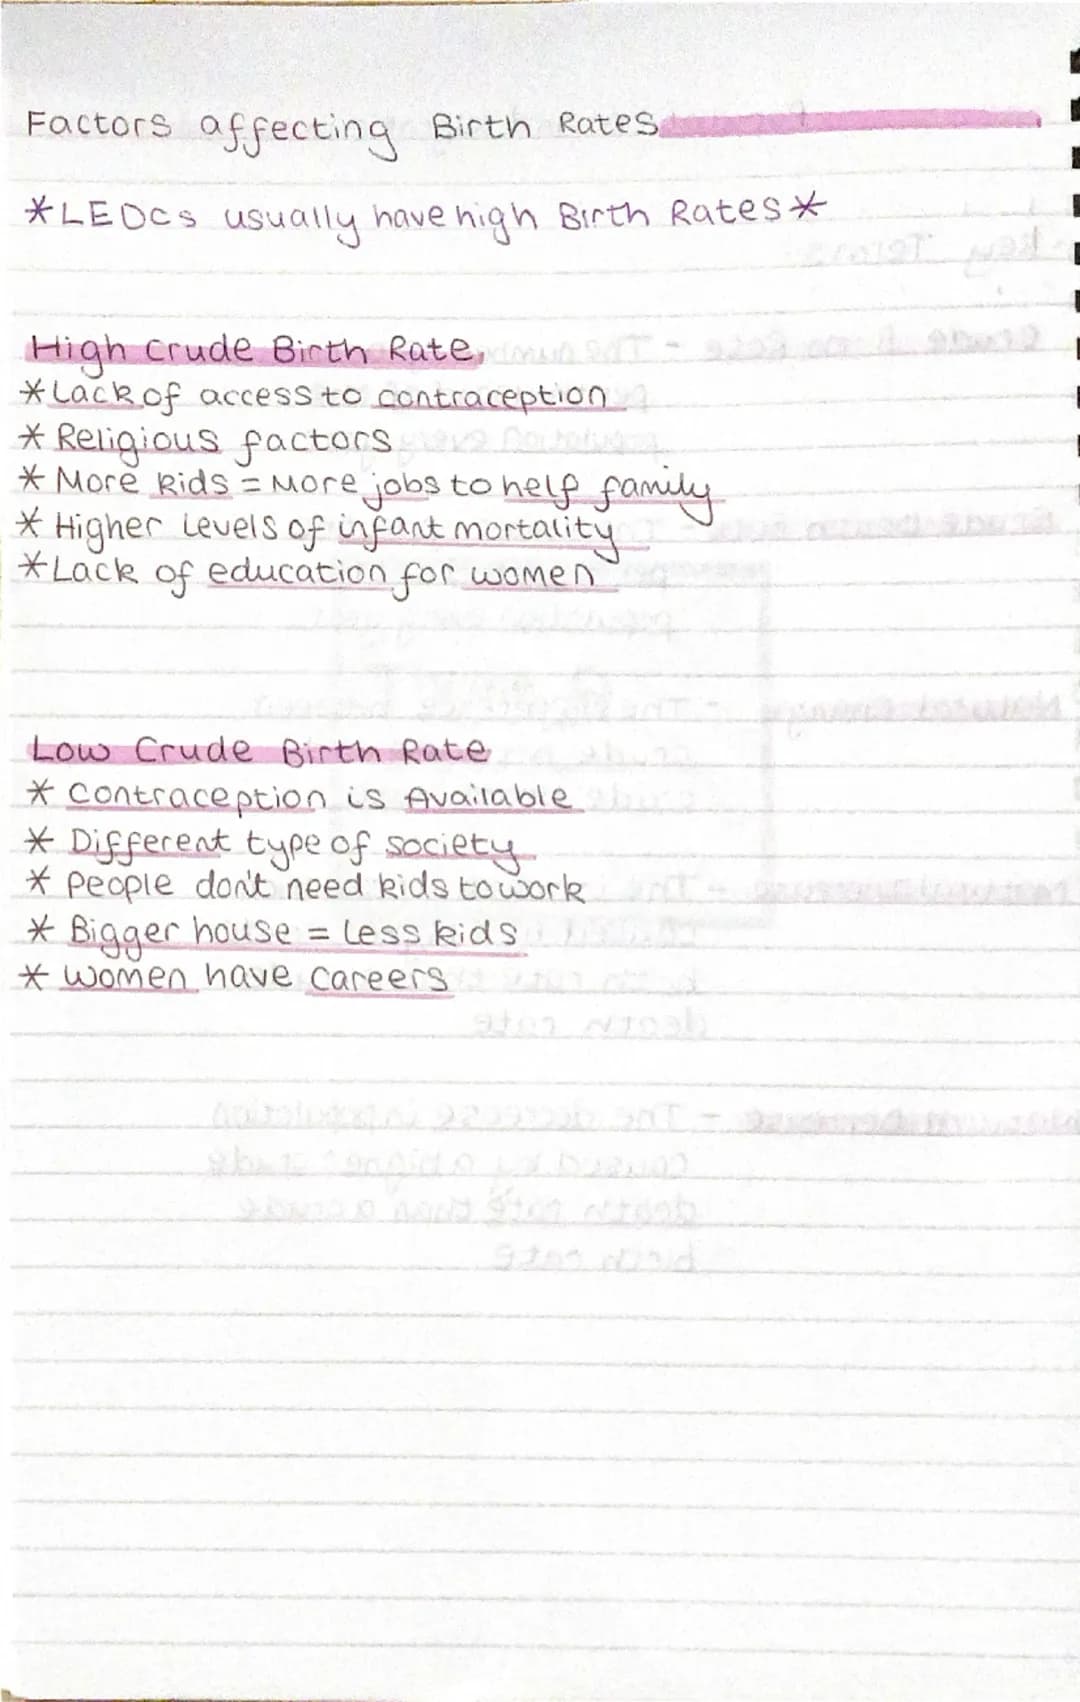 Factors affecting Birth Rates
*LEDCs usually have high Birth Rates*
High crude Birth Rate
*Lack of access to contraception
* Religious factors
* More kids = More jobs to help family
* Higher levels of infant mortality
*Lack of education for women
Low Crude Birth Rate
* Contraception is Available
* Different type of society
* People don't need kids to work
* Bigger house = less kids
* Women have careers